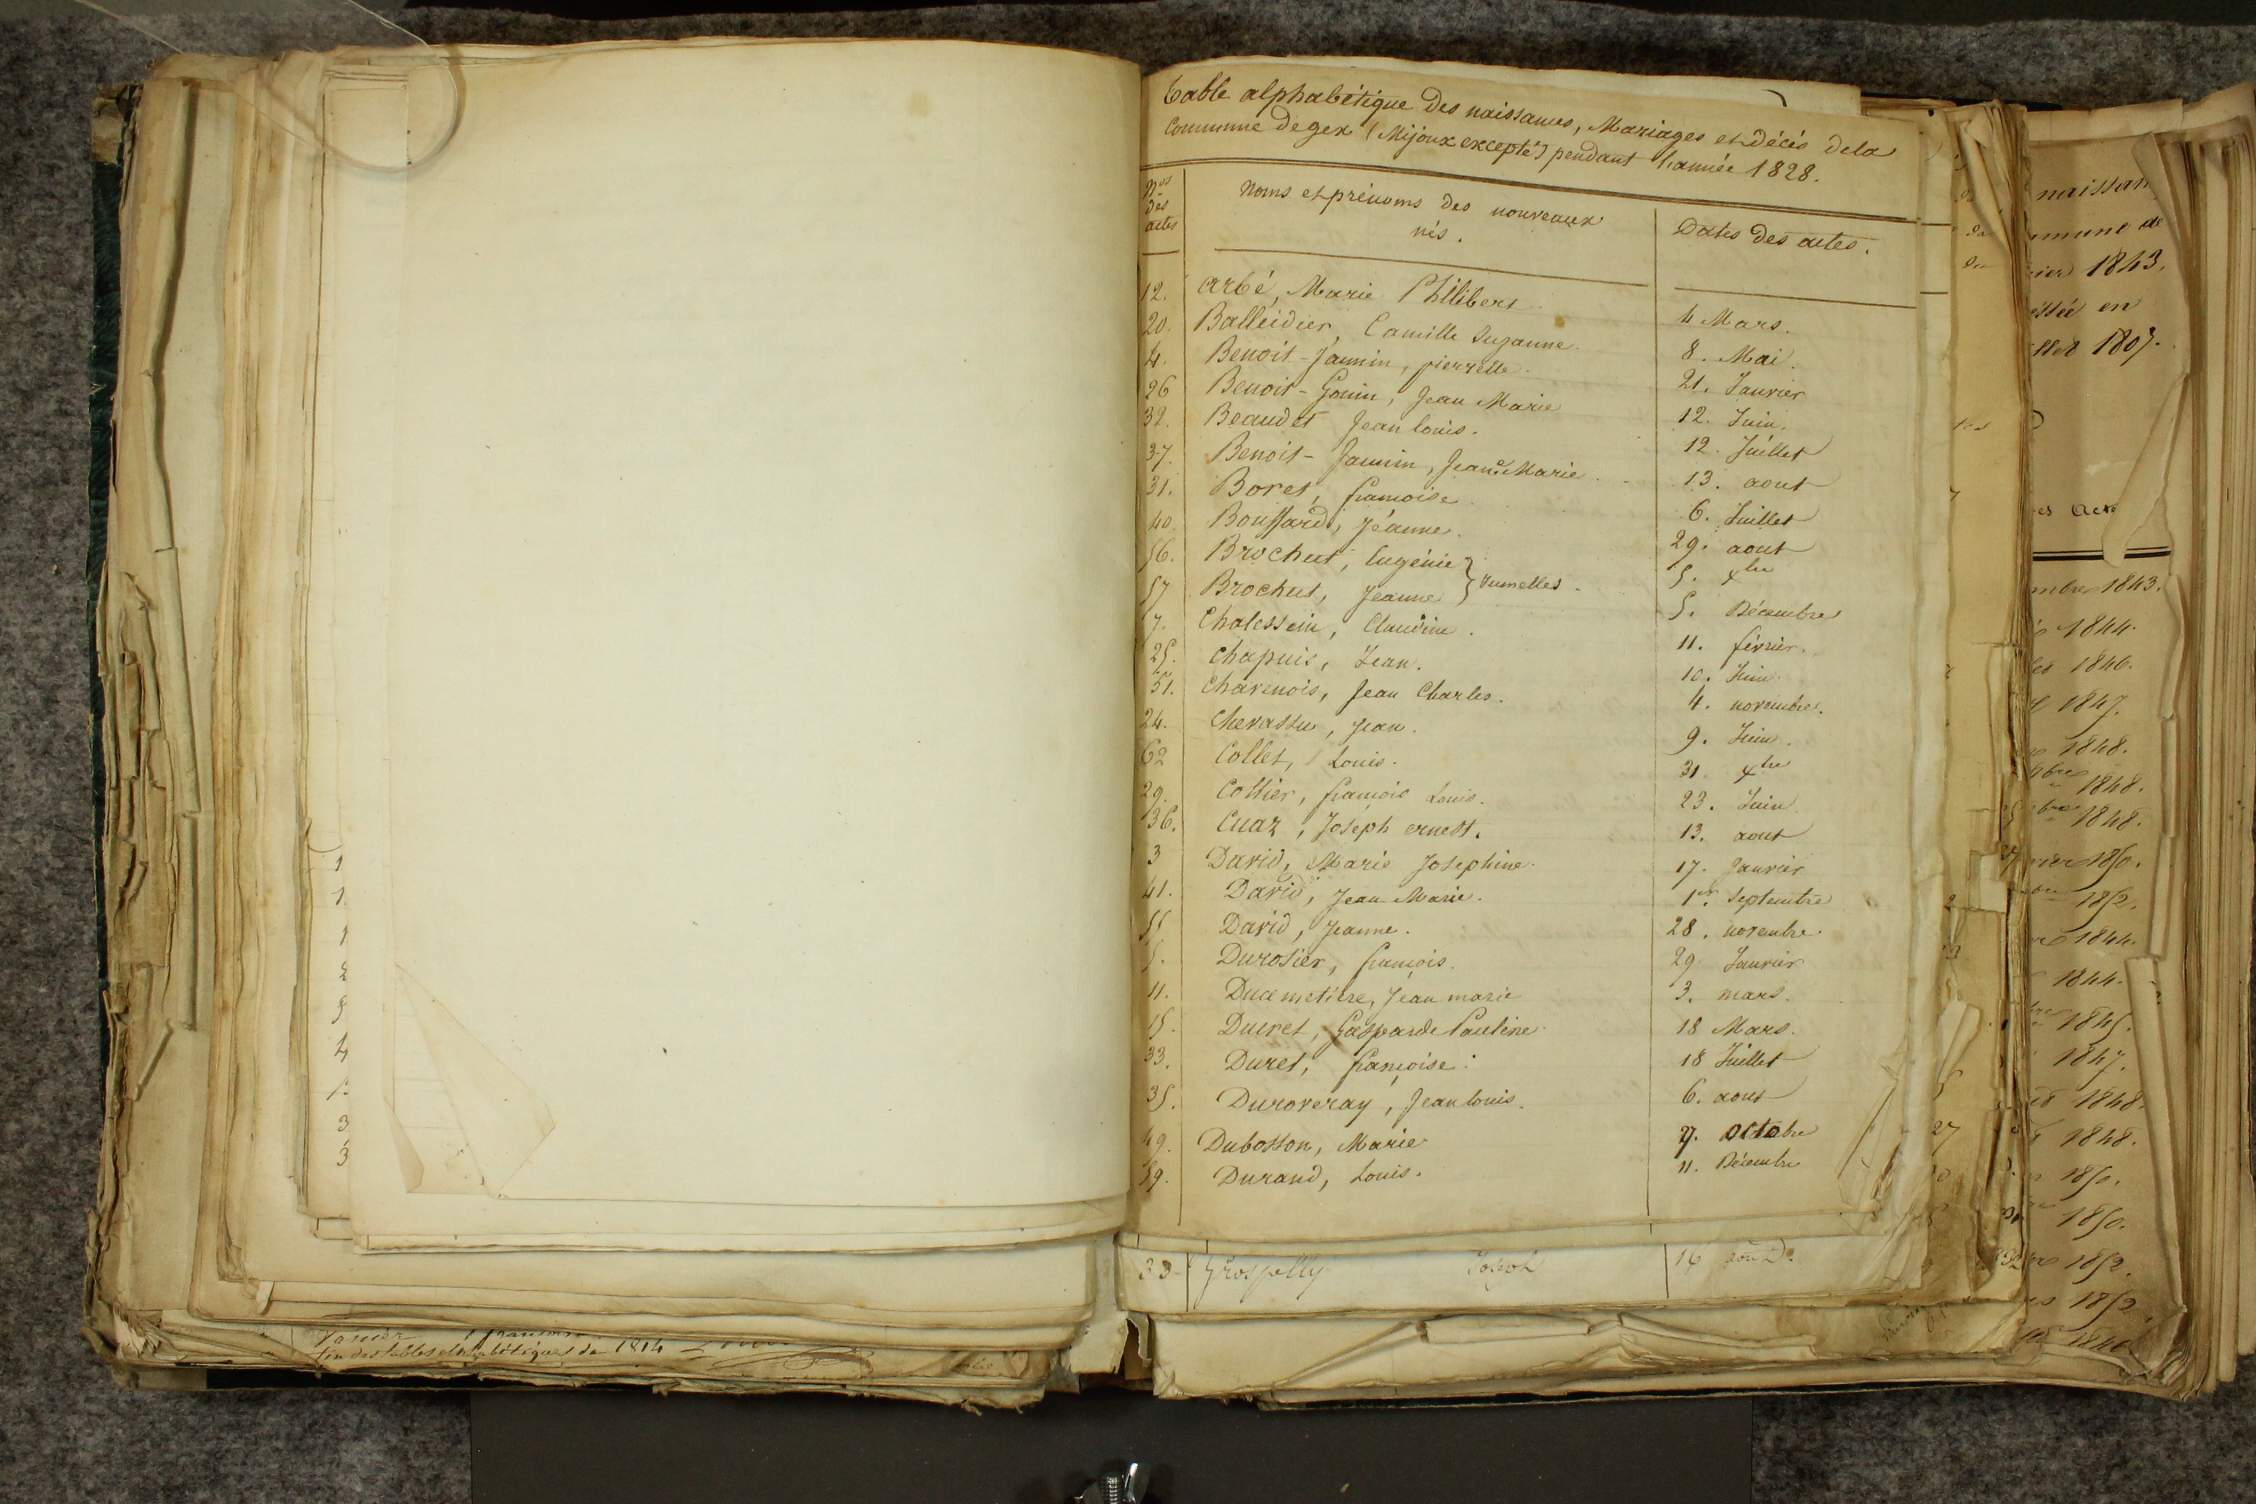 Table alphabétique des naissances, Mariages et décès dela
Commune de gex (Mijoux excepté) pendant l'année 1828.
Nos des actes Noms et prénoms des nouveaux nés. Dates des actes.
12. arbé, Marie Philibert 4 Mars.
20. Balleidier, Camille Suzanne. 8. Mai.
4. Benoit-Jannin, pierrette. 21. Janvier
26 Benoit-Gonin, Jean Marie 12. Juin.
32. Beaudet Jean louis. 12. Juillet
37. Benoit-Jannin, Jean Marie. 13. aout
31. Boret, francoise 6. Juillet
40. Bouffard, Jeanne. 29. aout
56. Brochut, Eugénie } Jumelles. 5. xbre
57 Brochut, Jeanne 5. Décembre
7. Chalessein, Claudine. 11. février.
25. Chapuis, Jean. 10. Juin.
51. Charenois, Jean Charles. 4. novembre.
24. Chevassu, Jean. 9. Juin.
62 Collet, Louis. 31. xbre
29. Collier, françois Louis. 23. Juin.
36. Cuaz, Joseph ernest. 13. aout
3 David, Marie Josephine. 17. Janvier
41. David, Jean Marie. 1er. Septembre
55 David, Jeanne. 28. novembre.
5. Durosier, françois. 29 Janvier
11. Ducimetière, Jean marie 3. mars.
15. Ducret, Gasparde Pauline. 18 Mars.
33. Duret, françoise. 18 Juillet
35. Duroveray, Jean louis. 6. aout
49. Dubosson, Marie 27. octobre
59. Durand, Louis. 11. Décembre
33 Grospelly Joseph 16 aout.
fin des tables alphabétiques de 1814
naissan
mmune de
1843.
en
1807.
1843.
1844.
1846.
1847.
1848.
1848.
1848.
1850.
1852.
1844.
1844.
1845.
1847.
1848.
1848.
1850.
1850.
1852.
1852.